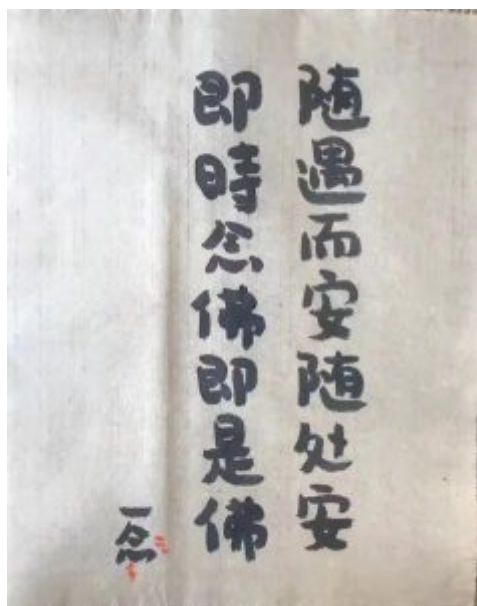 随遇而安随处安
即時念佛即是佛
一念